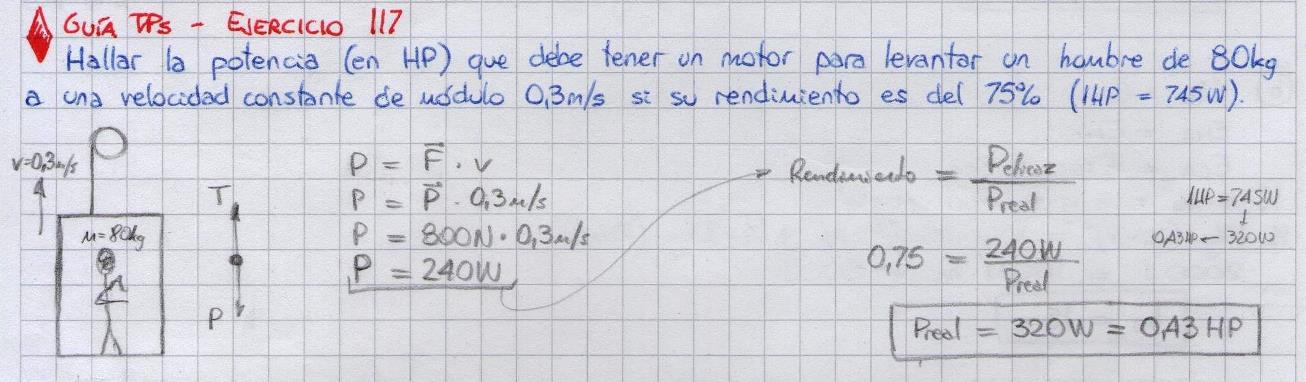 GUÍA TPs - EJERCICIO 117
Hallar la potencia (en HP) que debe tener un motor para levantar un hombre de 80kg
a una velocidad constante de módulo 0,3m/s si su rendimiento es del 75% (1HP = 745W).
v=0,3m/s
M=80kg
T
P
P = F⃗ . v
P = P⃗ . 0,3m/s
P = 800N . 0,3m/s
P = 240W
Rendimiento = Peficaz / Preal
0,75 = 240W / Preal
Preal = 320W = 0,43 HP
1HP = 745W
↓
0,43HP ← 320W